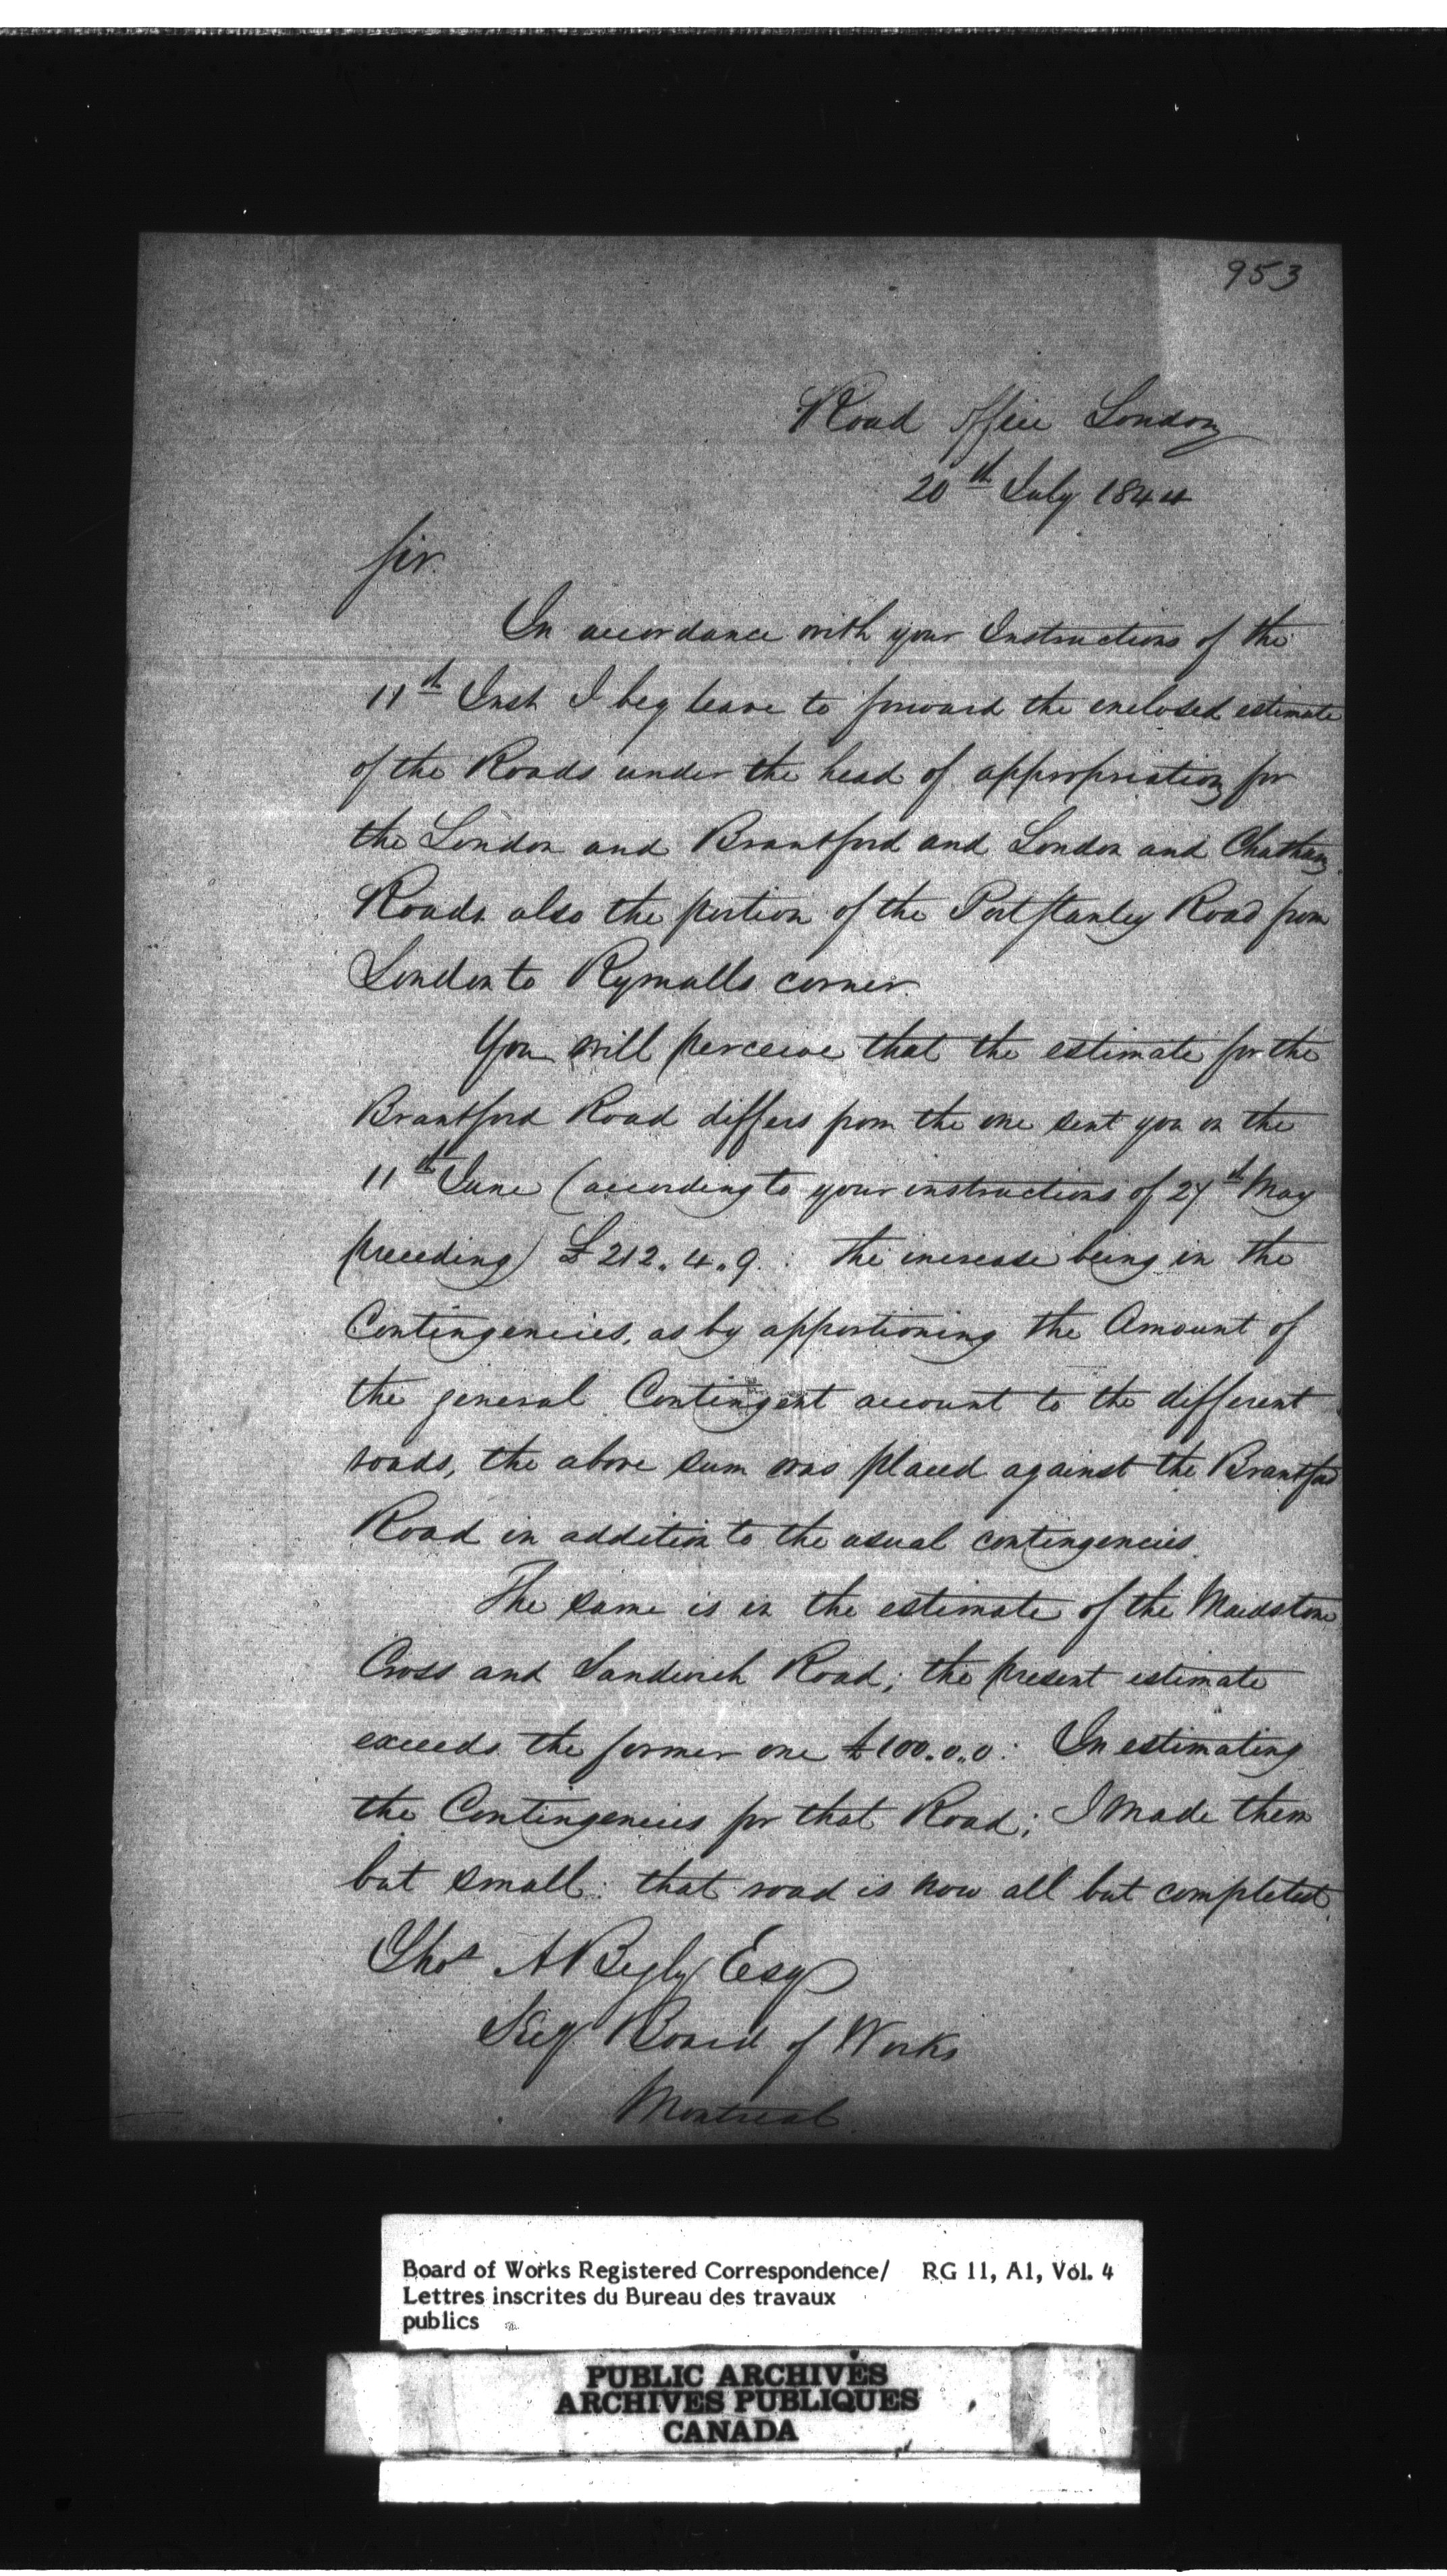 953
Road Office London
20th July 1844
Sir
In accordance with your Instructions of the
11th Inst I beg leave to forward the enclosed estimate
of the Roads under the head of appropriation for
the London and Brantford and London and Chatham
Roads also the portion of the Port Stanley Road from
London to Rymalls corner.
You will perceive that the estimate for the
Brantford Road differs from the one sent you on the
11th June (according to your instructions of 27th May
preceding) £212.4.9. : the increase being in the
Contingencies, as by apportioning the Amount of
the general Contingent account to the different
roads, the above sum was placed against the Brantford
Road in addition to the usual contingencies.
The same is in the estimate of the Maidstone
Cross and Sandwich Road; the present estimate
exceeds the former one £100.0.0: In estimating
the Contingencies for that Road; I made them
but small: that road is now all but completed.
Thos A Begly Esqr
Secy Board of Works
Montreal.
Board of Works Registered Correspondence/ RG 11, A1, Vol. 4
Lettres inscrites du Bureau des travaux
publics
PUBLIC ARCHIVES
ARCHIVES PUBLIQUES
CANADA